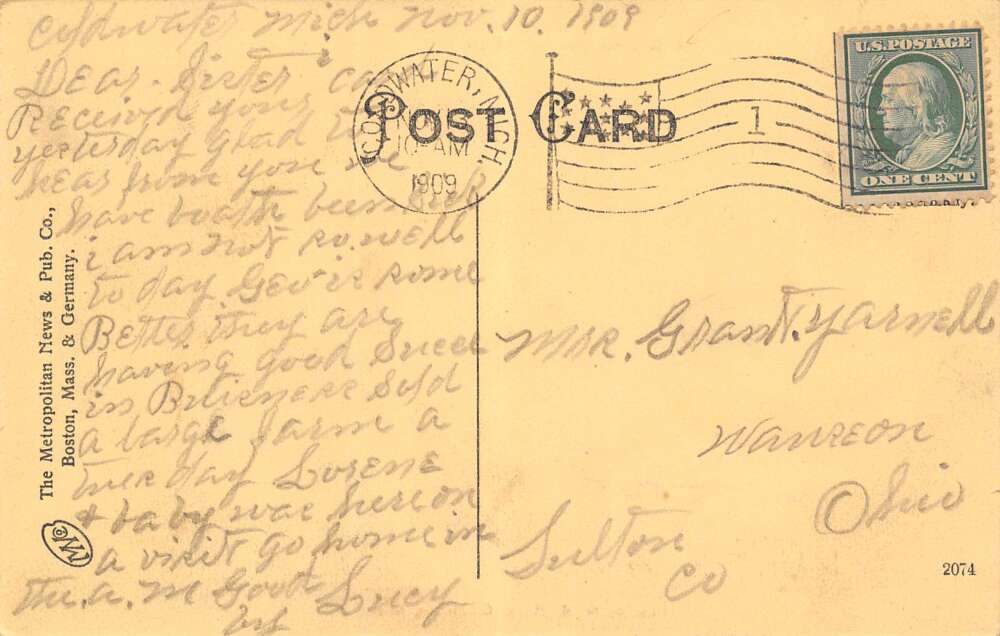 Coldwater Mich Nov. 10. 1909
Dear Sister ca
Received yours
yesterday glad to
hear from you we
have boath been sick
i am not so well
to day Geo is some
Better. they are
having good Succe
in Buisness Sold
a large farm a
tuesday Lorene
& baby was here on
a visit go home in
the a. m Good
by Lucy
COLDWATER, MICH.
AM
1909
POST CARD
1
U.S. POSTAGE
ONE CENT
Mrs. Grant. Yarnell
Wauseon
Ohio
Fulton
Co
The Metropolitan News & Pub. Co.,
Boston, Mass. & Germany.
2074